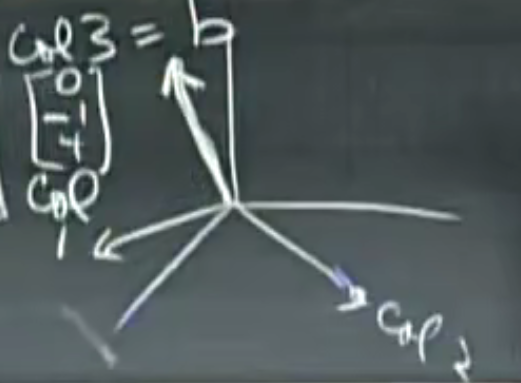 col 3 = b
[0
-1
4]
col
1
col 2